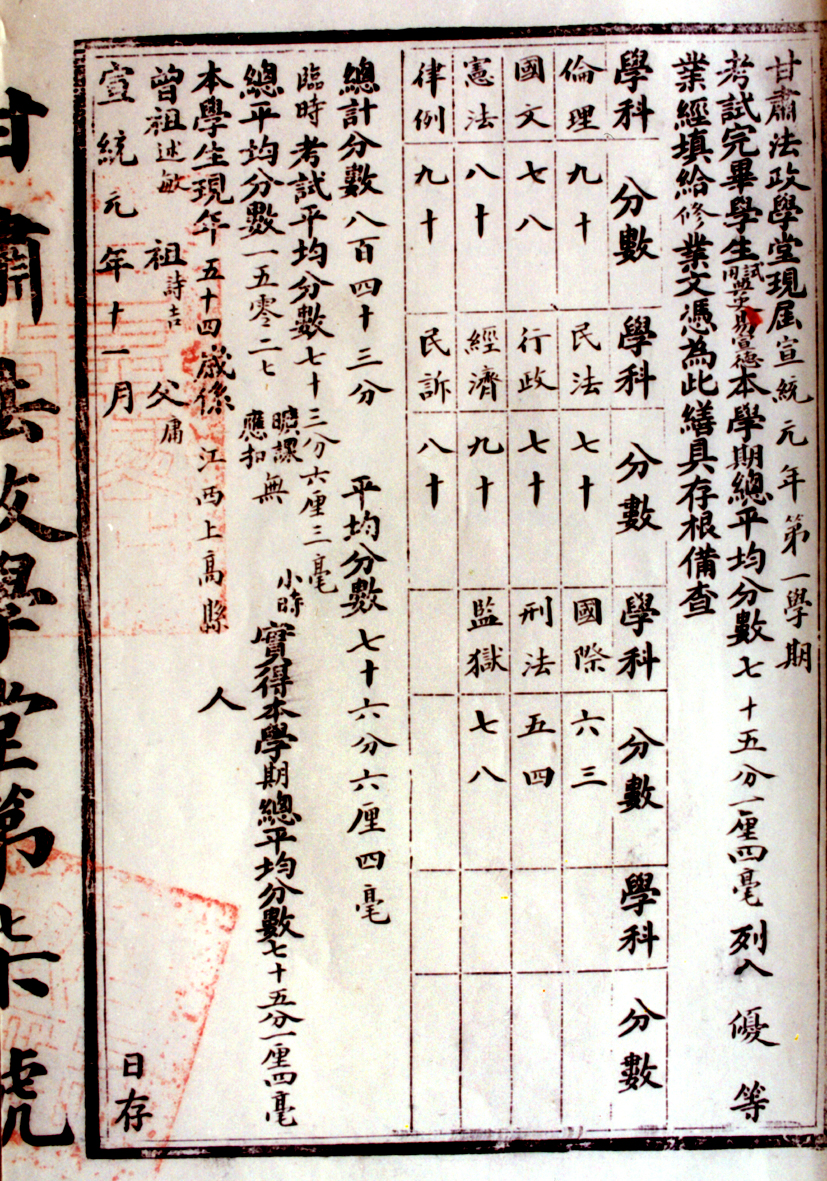 甘肅法政學堂現屆宣統元年第一學期
考試完畢學生試用鹽大使易宣德本學期總平均分數七十五分一厘四毫列入優等
業經填給修業文憑為此繕具存根備查
學科 分數 學科 分數 學科 分數 學科 分數
倫理 九十 民法 七十 國際 六三
國文 七八 行政 七十 刑法 五四
憲法 八十 經濟 九十 監獄 七八
律例 九十 民訴 八十
總計分數八百四十三分 平均分數七十六分六厘四毫
臨時考試平均分數七十三分六厘三毫
總平均分數一五零二七 曠課應扣無小時 實得本學期總平均分數七十五分一厘四毫
本學生現年五十四歲係江西上高縣人
曾祖述敏 祖詩吉 父庸
宣統元年十一月 日存
甘肅法政學堂第 號